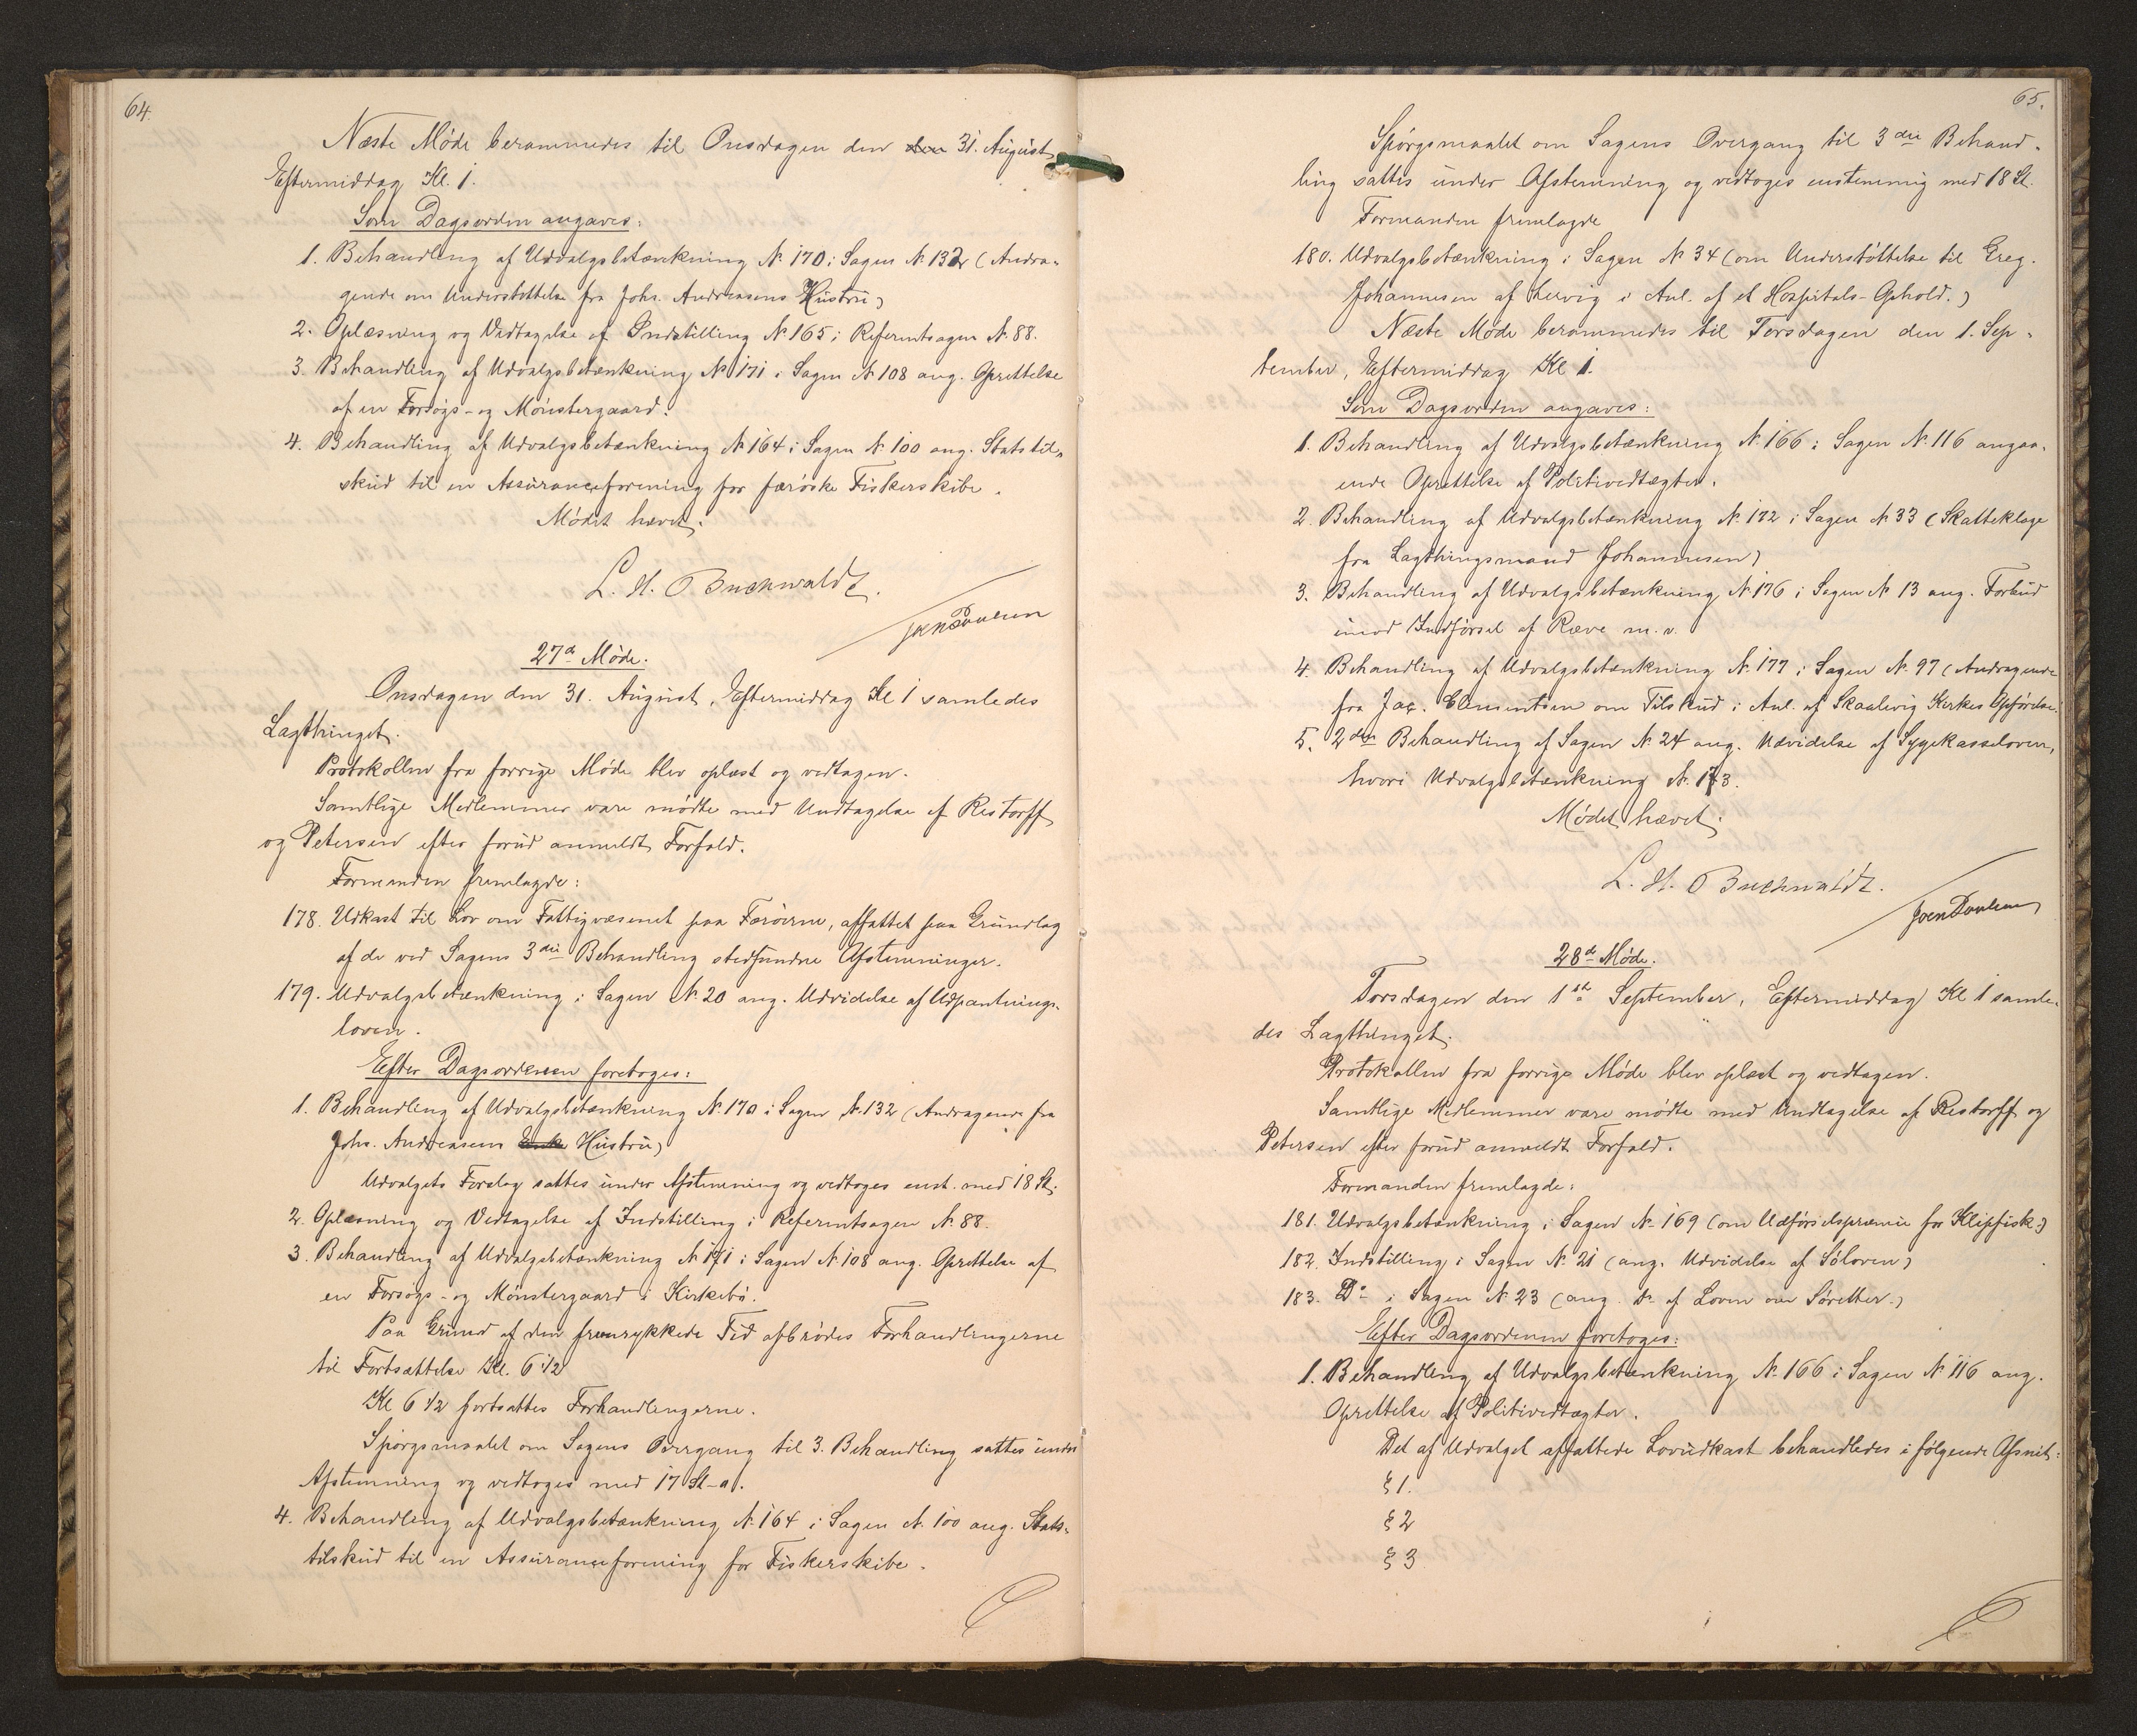 64.
Næste Møde berammedes til Onsdagen den den 31. August
Eftermiddag Kl. 1.
Som Dagsorden angaves:
1. Behandling af Udvalgsbetænkning № 170 i Sagen № 132 (Andra-
gende om Understøttelse fra Johs. Andreasens Hustru)
2. Oplæsning og Vedtagelse af Indstilling № 165 i Referentsagen № 88.
3. Behandling af Udvalgsbetænkning № 171 i Sagen № 108 ang. Oprettelse
af en Forsøgs- og Mønstergaard.
4. Behandling af Udvalgsbetænkning № 164 i Sagen № 100 ang. Statstil-
skud til en Assuranceforening for færøske Fiskerskibe.
Mødet hævet.
L. H. Buchwaldt.
Joen Poulsen
27de Møde.
Onsdagen den 31. August, Eftermiddag Kl 1 samledes
Lagthinget.
Protokollen fra forrige Møde blev oplæst og vedtagen.
Samtlige Medlemmer vare mødte med Undtagelse af Restorff
og Petersen efter forud anmeldt Forfald.
Formanden fremlagde:
178. Udkast til Lov om Fattigvæsenet paa Færøerne, affattet paa Grundlag
af de ved Sagens 3die Behandling stedfundne Afstemninger.
179. Udvalgsbetænkning i Sagen № 20 ang. Udvidelse af Udpantnings-
loven.
Efter Dagsordenen foretoges:
1. Behandling af Udvalgsbetænkning № 170 i Sagen № 132 (Andragende fra
Johs. Andreasens Enke Hustru)
Udvalgets Forslag sattes under Afstemning og vedtoges enst. med 18 St.
2. Oplæsning og Vedtagelse af Indstilling i Referentsagen № 88.
3. Behandling af Udvalgsbetænkning № 171 i Sagen № 108 ang. Oprettelse af
en Forsøgs- og Mønstergaard i Kirkebø.
Paa Grund af den fremrykkede Tid afbrødes Forhandlingerne
til Fortsættelse Kl. 6 1/2
Kl 6 1/2 fortsattes Forhandlingerne.
Spørgsmaalet om Sagens Overgang til 3. Behandling sattes under
Afstemning og vedtoges med 17 St - 0.
4. Behandling af Udvalgsbetænkning № 164 i Sagen № 100 ang. Stats-
tilskud til en Assuranceforening for Fiskerskibe.
65.
Spørgsmaalet om Sagens Overgang til 3die Behand-
ling sattes under Afstemning og vedtoges enstemmig med 18 St.
Formanden fremlagde
180. Udvalgsbetænkning i Sagen № 34 (om Understøttelse til Greg.
Johannesen af Lervig i Anl. af et Hospitals-Ophold.)
Næste Møde berammedes til Torsdagen den 1. Sep-
tember, Eftermiddag Kl 1.
Som Dagsorden angaves:
1. Behandling af Udvalgsbetænkning № 166 i Sagen № 116 angaa-
ende Oprettelse af Politivedtægter.
2. Behandling af Udvalgsbetænkning № 172 i Sagen № 33 (Skatteklage
fra Lagthingsmand Johannesen)
3. Behandling af Udvalgsbetænkning № 176 i Sagen № 13 ang. Forbud
imod Indførsel af Ræve m. v.
4. Behandling af Udvalgsbetænkning № 177 i Sagen № 97 (Andragende
fra Jac. Clementsen om Tilskud i Anl. af Skaalevig Kirkes Opførelse.
5. 2den Behandling af Sagen № 24 ang. Udvidelse af Sygekasseloven,
hvori Udvalgsbetænkning № 173.
Mødet hævet.
L. H. Buchwaldt.
Joen Poulsen
28de Møde.
Torsdagen den 1ste September, Eftermiddag Kl 1 samle-
des Lagthinget.
Protokollen fra forrige Møde blev oplæst og vedtagen.
Samtlige Medlemmer vare mødte med Undtagelse af Restorff og
Petersen efter forud anmeldt Forfald.
Formanden fremlagde:
181. Udvalgsbetænkning i Sagen № 169 (om Udførselspræmie for Klipfisk.)
182. Indstilling i Sagen № 21 (ang. Udvidelse af Søloven)
183. Do i Sagen № 23 (ang. Do af Loven om Søretter.)
Efter Dagsordenen foretoges:
1. Behandling af Udvalgsbetænkning № 166 i Sagen № 116 ang.
Oprettelse af Politivedtægter.
Det af Udvalget affattede Lovudkast behandledes i følgende Afsnit:
§ 1.
§ 2
§ 3